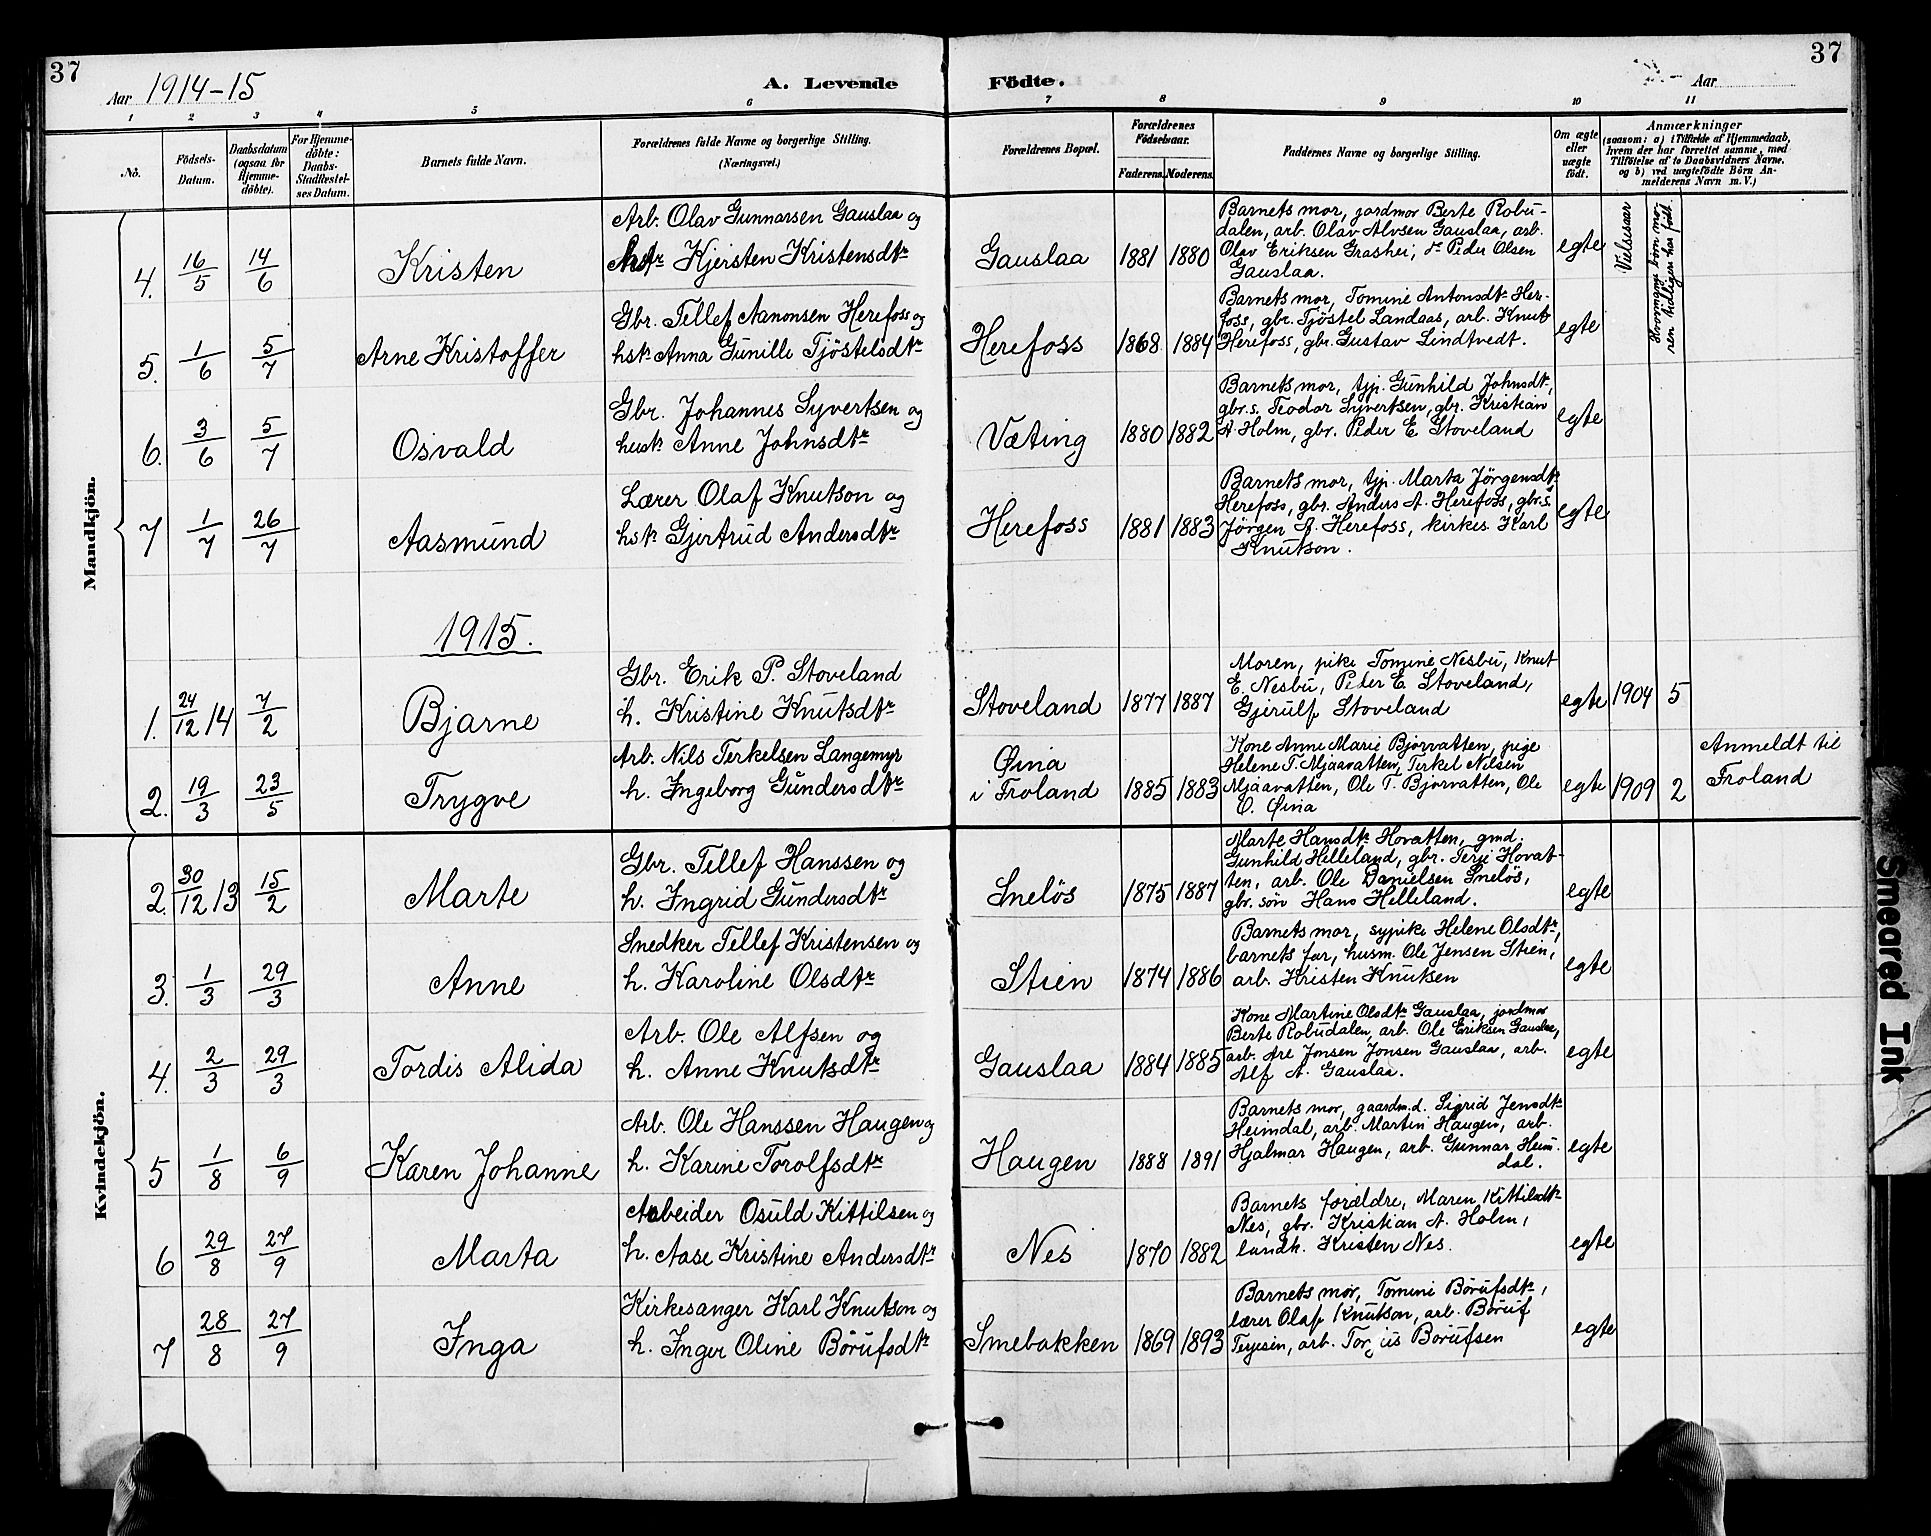 37
Aar 1914-15
A. Levende
Födte.
Aar
37
1 2 3 4 5 6 7 8 9 10 11
No.
Födsels-
Datum.
Daabsdatum
(ogsaa för
Hjemme-
döbte).
For Hjemme-
döbte:
Daabs-
Stadfæstel-
ses Datum.
Barnets fulde Navn.
Forældrenes fulde Navne og borgerlige Stilling.
(Næringsvei.)
Forældrenes Bopæl.
Forældrenes
Födselsaar.
Faderens. Moderens.
Faddernes Navne og borgerlige Stilling.
Om ægte
eller
uægte
födt.
Anmærkninger
(saasom: a) i Tilfælde af Hjemmedaab,
hvem der har forrettet samme, med
Tilföielse af to Daabsvidners Navne.
og b) ved uægtefödte Börn An-
melderens Navn m. V.)
Vielsesaar
Hvormange börn mo-
ren tidligere har född.
Mandkjön.
4. 16/5 14/6 Kristen
Arb. Olav Gunnarsen Gauslaa og
hstr Kjersten Kristensdtr
Gauslaa 1881 1880
Barnets mor, jordmor Berte Robu-
dalen, arb. Olav Alvsen Gauslaa, arb.
Olav Eriksen Grashei, do Peder Olsen
Gauslaa.
egte
5. 1/6 5/7 Arne Kristoffer
Gbr. Tellef Aanonsen Herefoss og
hstr Anna Gunille Tjöstelsdtr
Herefoss 1868 1884
Barnets mor, Tomine Antonsdtr Here-
foss, gbr. Tjöstel Landaas, arb. Knut
Herefoss, gbr. Gustav Lindtvedt.
egte
6. 3/6 5/7 Osvald
Gbr. Johannes Syvertsen og
hustr Anne Johnsdtr
Væting 1880 1882
Barnets mor, tjp. Gunhild Johnsdtr,
gbr.s. Teodor Syvertsen, gbr. Kristian
A. Holm, gbr. Peder E. Stoveland
egte
7 1/7 26/7 Aasmund
Lærer Olaf Knutson og
hstr Gjertrud Andersdtr
Herefoss 1881 1883
Barnets mor, tjp. Marta Jørgensdtr
Herefoss, gbr. Anders A. Herefoss, gbr.s.
Jørgen A. Herefoss, kirkes. Karl
Knutson.
egte
1915.
1. 24/12 14 7/2 Bjarne
Gbr. Erik P. Stoveland
h. Kristine Knutsdtr
Stoveland 1877 1887
Moren, pike Tomine Nesbu, Knut
E. Nesbu, Peter E. Stoveland,
Gjerulf Stoveland
egte 1904 5
2. 19/3 23/5 Trygve
Arb. Nils Terkelsen Langemyr
h. Ingeborg Gundersdtr
Øina
i Froland 1885 1883
Kone Anne Marie Bjorvatten, pige
Helene T. Mjaavatten, Terkel Nilsen
Mjaavatten, Ole T. Bjorvatten, Ole
O. Øina
egte 1909 2
Anmeldt til
Froland
Kvindekjön.
2. 30/12 13 15/2 Marte
Gbr. Tellef Hanssen og
h. Ingrid Gundersdtr
Sneløs 1875 1887
Marte Hansdtr Hovatten, gmd.
Gunhild Helleland, gbr. Terje Hovat-
ten, arb. Ole Danielsen Sneløs,
gbr. søn Hans Helleland.
egte
3. 1/3 29/3 Anne
Snedker Tellef Kristensen og
h. Karoline Olsdtr
Stien 1874 1886
Barnets mor, sypike Helene Olsdtr,
barnets far, husm. Ole Jensen Stien,
arb. Kristen Knutsen
egte
4. 2/3 29/3 Tordis Alida
Arb. Ole Alfsen og
h. Anne Knutsdtr
Gauslaa 1884 1885
Kone Martine Olsdtr Gauslaa, jordmor
Berte Robudalen, arb. Ole Eriksen Gauslaa,
arb. Are Jonsen Jonsen Gauslaa, arb.
Alf A. Gauslaa.
egte
5 1/8 6/9 Karen Johanne
Arb. Ole Hanssen Haugen og
h. Karine Torolfsdtr
Haugen 1888 1891
Barnets mor, gaardm.d. Sigrid Jensdtr
Heimdal, arb. Martin Haugen, arb.
Hjalmar Haugen, arb. Gunnar Heim-
dal.
egte
6 29/8 27/9 Marta
Arbeider Osuld Kittilsen og
h. Aase Kristine Andersdtr
Nes 1870 1882
Barnets forældre, Maren Kittilsdtr
Nes, gbr. Kristian A. Holm,
landh. Kristen Nes.
egte
7 28/8 27/9 Inga
Kirkesanger Karl Knutson og
h. Inger Oline Börufsdtr
Smebakken 1869 1893
Barnets mor, Tomine Börufsdtr,
lærer Olaf Knutson, arb. Böruf
Terjesen, arb. Torjus Borufsen
egte
Smeared Ink